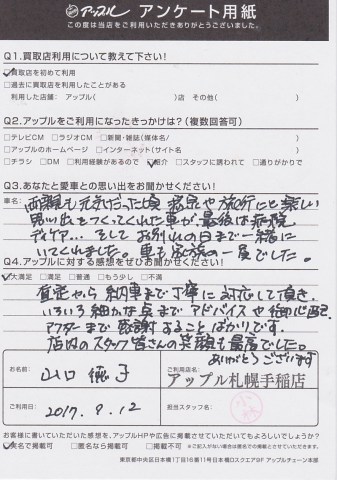 アップル アンケート用紙
この度は当店をご利用いただきありがとうございました。
Q1.買取店利用について教えて下さい!
☑買取店を初めて利用
□過去に買取店を利用したことがある
利用した店舗: アップル( )店 その他( )
Q2.アップルをご利用になったきっかけは?(複数回答可)
□テレビCM □ラジオCM □新聞・雑誌(媒体名/ )
□アップルのホームページ □インターネット(サイト名 )
□チラシ □DM □利用経験があるので ☑紹介 □スタッフに誘われて □通りがかりで
Q3.あなたと愛車との思い出をお聞かせください!
車名:
両親も元気だった頃 移動や旅行にと楽しい
思い出をつくってくれた車が、最後は病院
デイケア… そしてお別れの日まで一緒に
いてくれました。車も家族の一員でした。
Q4.アップルに対する感想をぜひお聞かせください!
☑大満足 □満足 □普通 □もう少し □不満
査定から納車まで丁寧に対応して頂き、
いろいろ細かな点までアドバイスや御心配
アフターまで感謝することばかりです。
店内のスタッフ皆さんの笑顔も最高でした。
ありがとうございます
お名前 山口 徳子
ご利用店名 アップル札幌手稲店
ご利用日 2017.9.12
担当スタッフ名 小林
お客様に書いていただいた感想を、アップルHPや広告に掲載させていただいてもよろしいでしょうか?
☑実名で掲載可 □匿名なら掲載可 □掲載不可
※ご記入がない場合は匿名での掲載とさせていただきます。
東京都中央区日本橋1丁目16番11号日本橋DスクエアBF アップルチェーン本部